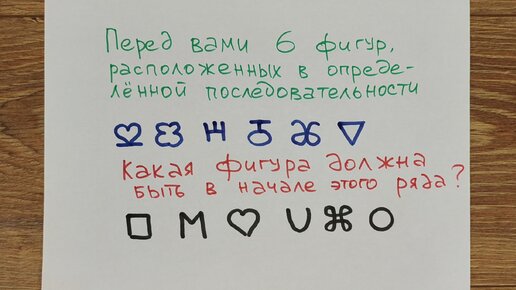 Перед вами 6 фигур,
расположенных в опреде-
лённой последовательности
Какая фигура должна
быть в начале этого ряда?